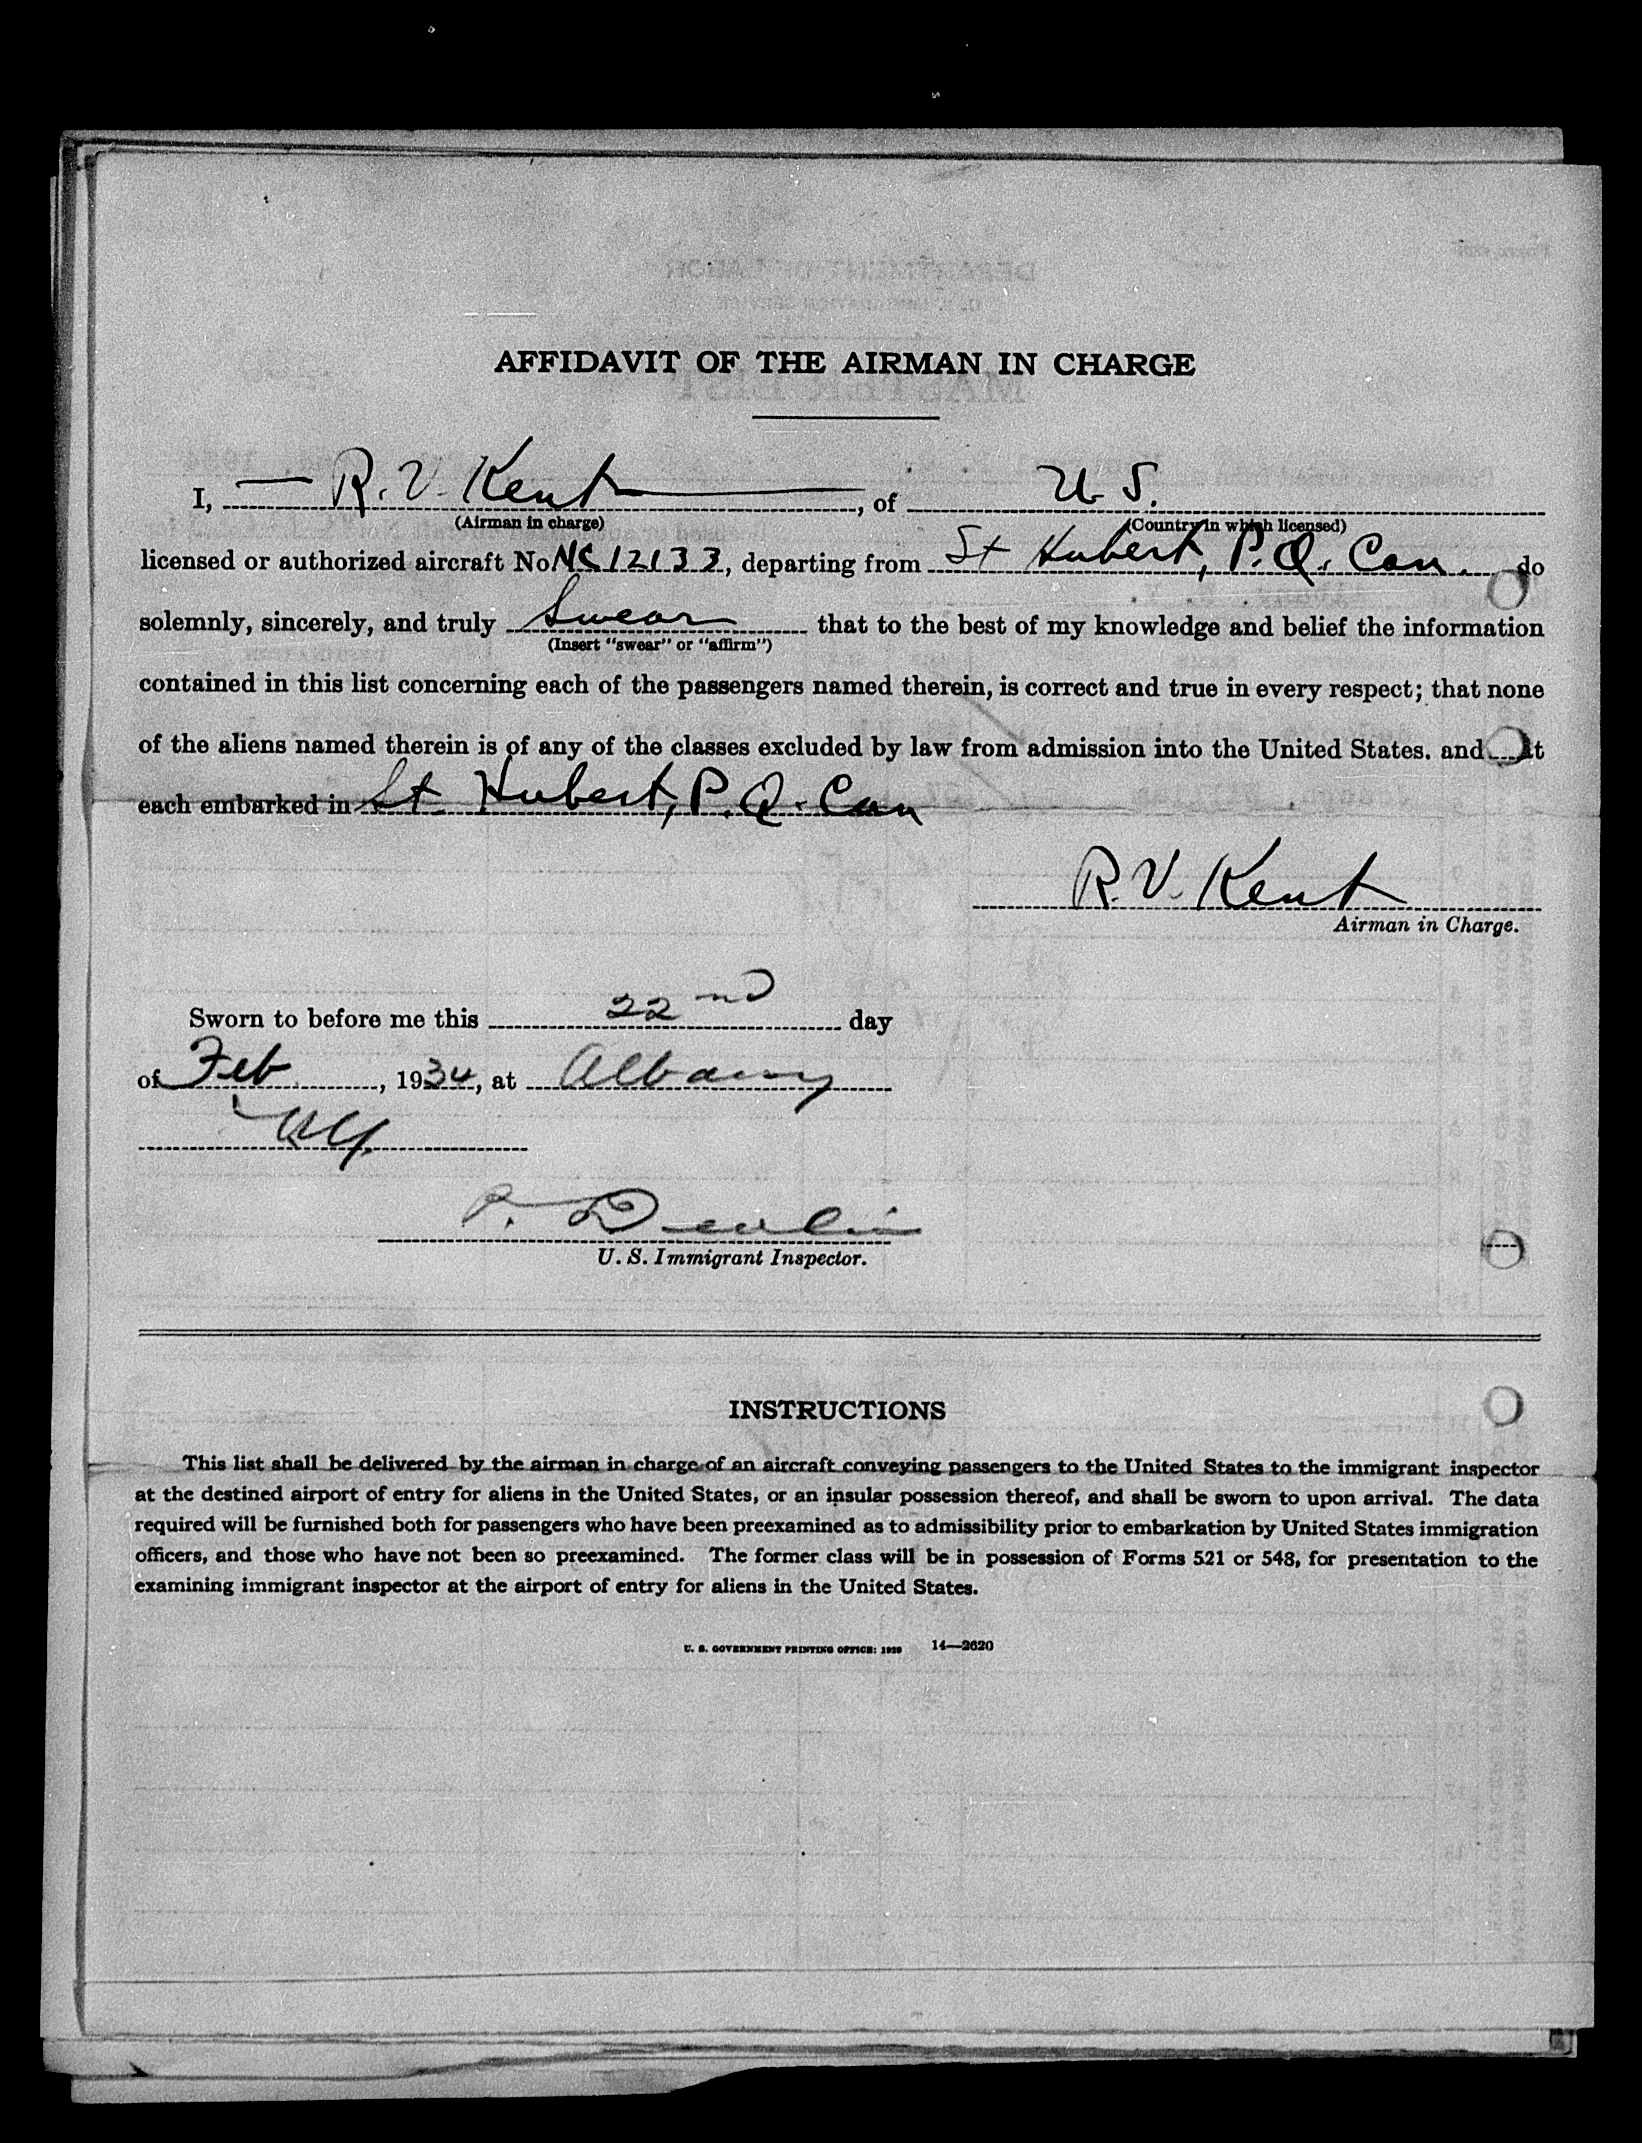 AFFIDAVIT OF THE AIRMAN IN CHARGE
I, R. V. Kent, of U.S.
(Airman in charge) (Country in which licensed)
licensed or authorized aircraft No. NC12133, departing from St Hubert, P.Q. Can. do
solemnly, sincerely, and truly Swear that to the best of my knowledge and belief the information
(Insert "swear" or "affirm")
contained in this list concerning each of the passengers named therein, is correct and true in every respect; that none
of the aliens named therein is of any of the classes excluded by law from admission into the United States. and
each embarked in St Hubert, P.Q. Can
R. V. Kent
Airman in Charge.
Sworn to before me this 22nd day
of Feb, 1934, at Albany
NY.
P. Devlin
U. S. Immigrant Inspector.
INSTRUCTIONS
This list shall be delivered by the airman in charge of an aircraft conveying passengers to the United States to the immigrant inspector
at the destined airport of entry for aliens in the United States, or an insular possession thereof, and shall be sworn to upon arrival. The data
required will be furnished both for passengers who have been preexamined as to admissibility prior to embarkation by United States immigration
officers, and those who have not been so preexamined. The former class will be in possession of Forms 521 or 548, for presentation to the
examining immigrant inspector at the airport of entry for aliens in the United States.
U. S. GOVERNMENT PRINTING OFFICE: 14—2620